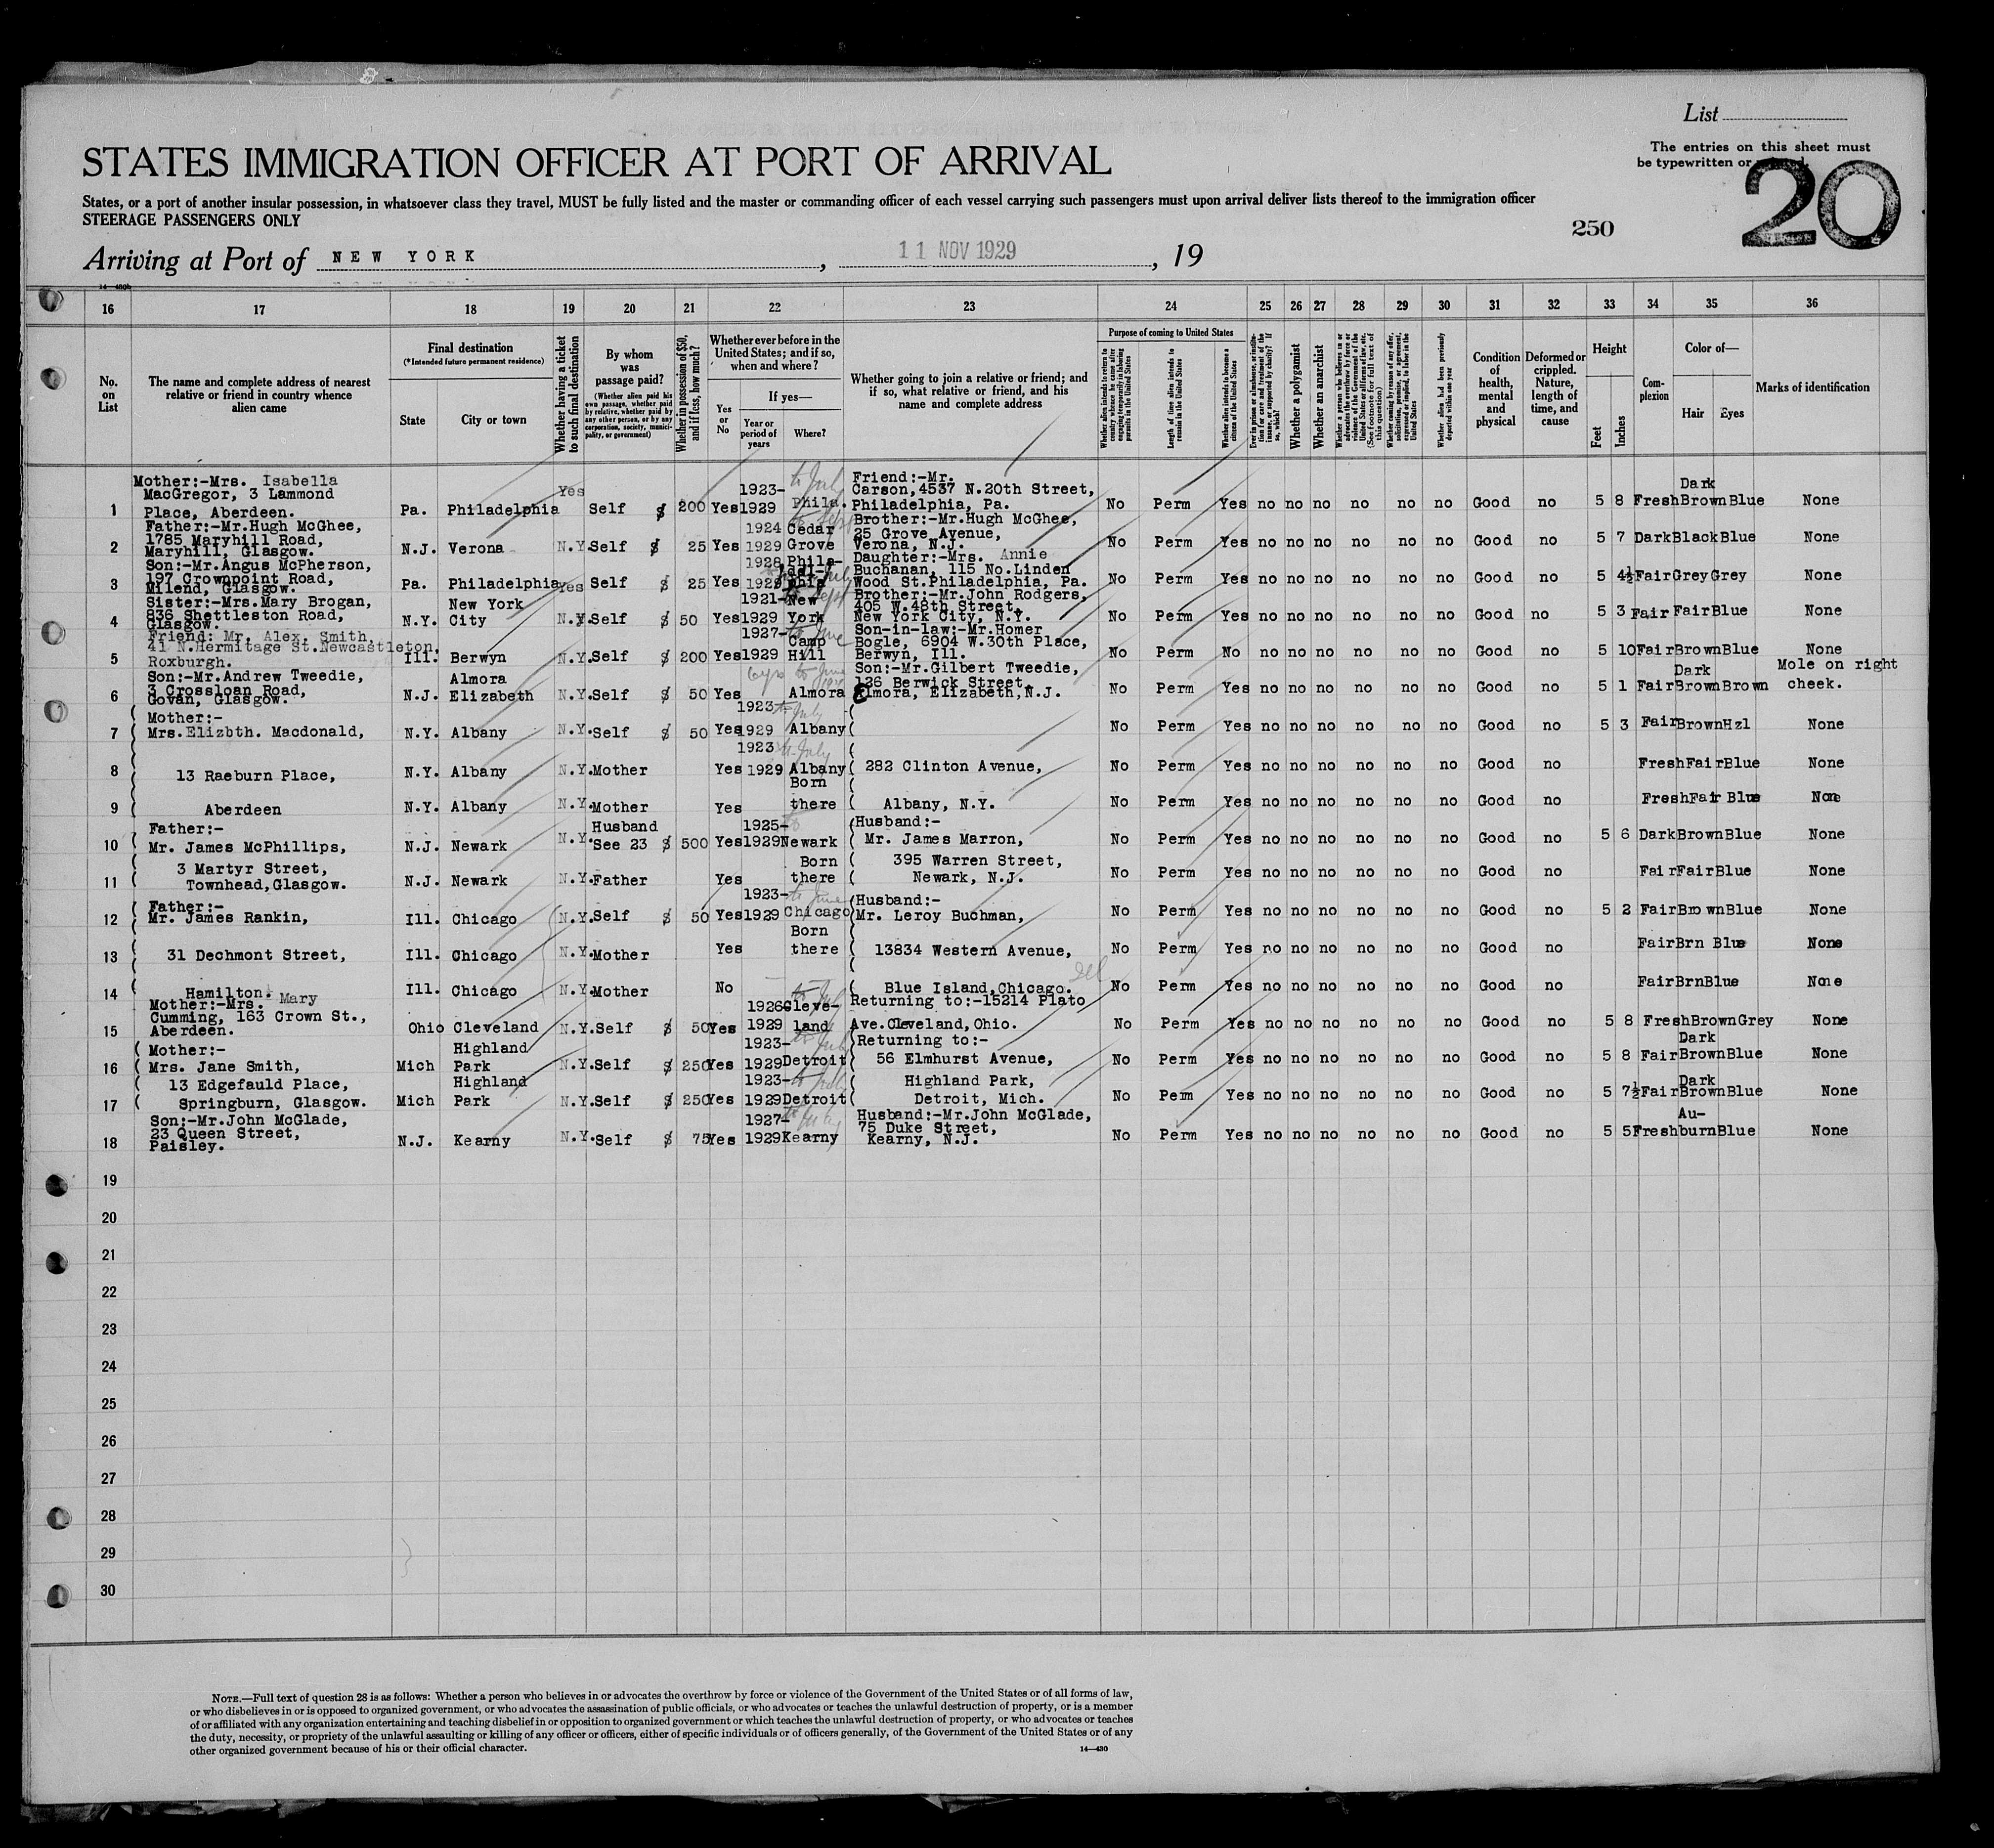 8
List
The entries on this sheet must
be typewritten or
STATES IMMIGRATION OFFICER AT PORT OF ARRIVAL
20
States, or a port of another insular possession, in whatsoever class they travel, MUST be fully listed and the master or commanding officer of each vessel carrying such passengers must upon arrival deliver lists thereof to the immigration officer
STEERAGE PASSENGERS ONLY
250
Arriving at Port of NEW YORK , 11 NOV 1929 , 19
16 17 18 19 20 21 22 23 24 25 26 27 28 29 30 31 32 33 34 35 36
No. on List
The name and complete address of nearest relative or friend in country whence alien came
Final destination
(*Intended future permanent residence)
State City or town
Whether having a ticket to such final destination
By whom was passage paid?
(Whether alien paid his own passage, whether paid by relative, whether paid by any other person, or by any corporation, society, municipality, or government)
Whether in possession of $50, and if less, how much?
Whether ever before in the United States; and if so, when and where?
Yes or No
If yes—
Year or period of years Where?
Whether going to join a relative or friend; and if so, what relative or friend, and his name and complete address
Purpose of coming to United States
Length of time alien intends to remain in the United States
Whether alien intends to become a citizen of the United States
Whether a polygamist
Whether an anarchist
Condition of health, mental and physical
Deformed or crippled. Nature, length of time, and cause
Height
Feet Inches
Complexion
Color of—
Hair Eyes
Marks of identification
1 Mother:-Mrs. Isabella MacGregor, 3 Lammond Place, Aberdeen. Pa. Philadelphia Yes Self $ 200 Yes 1923-1929 Phila. Friend:-Mr. Carson,4537 N.20th Street, Philadelphia, Pa. No Perm Yes no no no no no no Good no 5 8 Fresh Dark Brown Blue None
2 Father:-Mr.Hugh McGhee, 1785 Maryhill Road, Maryhill, Glasgow. N.J. Verona N.Y. Self $ 25 Yes 1924 1929 Cedar Grove Brother:-Mr.Hugh McGhee, 25 Grove Avenue, Verona, N.J. No Perm Yes no no no no no no Good no 5 7 Dark Black Blue None
3 Son:-Mr.Angus McPherson, 197 Crownpoint Road, Milend, Glasgow. Pa. Philadelphia Yes Self $ 25 Yes 1928 1929 Phila-del-phia Daughter:-Mrs. Annie Buchanan, 115 No.Linden Wood St.Philadelphia, Pa. No Perm Yes no no no no no no Good no 5 4½ Fair Grey Grey None
4 Sister:-Mrs.Mary Brogan, 836 Shettleston Road, Glasgow. N.Y. New York City N.Y. Self $ 50 Yes 1921-1929 New York Brother:-Mr.John Rodgers, 405 W.48th Street, New York City, N.Y. No Perm Yes no no no no no no Good no 5 3 Fair Fair Blue None
5 Friend: Mr. Alex. Smith, 41 N.Hermitage St.Newcastleton, Roxburgh. Ill. Berwyn N.Y. Self $ 200 Yes 1927-1929 Camp Hill Son-in-law:-Mr.Homer Bogle, 6904 W.30th Place, Berwyn, Ill. No Perm No no no no no no no Good no 5 10 Fair Brown Blue None
6 Son:-Mr.Andrew Tweedie, 3 Crossloan Road, Govan, Glasgow. N.J. Almora Elizabeth N.Y. Self $ 50 Yes Almora Son:-Mr.Gilbert Tweedie, 136 Berwick Street, Elmora, Elizabeth,N.J. No Perm Yes no no no no no no Good no 5 1 Fair Dark Brown Brown Mole on right cheek.
7 Mother:- Mrs.Elizbth. Macdonald, N.Y. Albany N.Y. Self $ 50 Yes 1923 1929 to July Albany No Perm Yes no no no no no no Good no 5 3 Fair Brown Hzl None
8 13 Raeburn Place, N.Y. Albany N.Y. Mother Yes 1923 1929 Albany 282 Clinton Avenue, No Perm Yes no no no no no no Good no Fresh Fair Blue None
9 Aberdeen N.Y. Albany N.Y. Mother Yes Born there Albany, N.Y. No Perm Yes no no no no no no Good no Fresh Fair Blue None
10 Father:- Mr. James McPhillips, N.J. Newark N.Y. Husband See 23 $ 500 Yes 1925-1929 Newark Husband:- Mr. James Marron, No Perm Yes no no no no no no Good no 5 6 Dark Brown Blue None
11 3 Martyr Street, Townhead,Glasgow. N.J. Newark N.Y. Father Yes Born there 395 Warren Street, Newark, N.J. No Perm Yes no no no no no no Good no Fair Fair Blue None
12 Father:- Mr. James Rankin, Ill. Chicago N.Y. Self $ 50 Yes 1923-1929 to June Chicago Husband:- Mr. Leroy Buchman, No Perm Yes no no no no no no Good no 5 2 Fair Brown Blue None
13 31 Dechmont Street, Ill. Chicago N.Y. Mother Yes Born there 13834 Western Avenue, No Perm Yes no no no no no no Good no Fair Brn Blue None
14 Hamilton. Ill. Chicago N.Y. Mother No Blue Island,Chicago. No Perm Yes no no no no no no Good no Fair Brn Blue None
15 Mother:-Mrs. Mary Cumming, 163 Crown St., Aberdeen. Ohio Cleveland N.Y. Self $ 50 Yes 1926 1929 Cleve-land Returning to:-15214 Plato Ave.Cleveland,Ohio. No Perm Yes no no no no no no Good no 5 8 Fresh Brown Grey None
16 Mother:- Mrs. Jane Smith, Mich Highland Park N.Y. Self $ 250 Yes 1923-1929 to July Detroit Returning to:- 56 Elmhurst Avenue, No Perm Yes no no no no no no Good no 5 8 Fair Dark Brown Blue None
17 13 Edgefauld Place, Springburn, Glasgow. Mich Highland Park N.Y. Self $ 250 Yes 1923-1929 to July Detroit Highland Park, Detroit, Mich. No Perm Yes no no no no no no Good no 5 7½ Fair Dark Brown Blue None
18 Son:-Mr.John McGlade, 23 Queen Street, Paisley. N.J. Kearny N.Y. Self $ 75 Yes 1927-1929 Kearny Husband:-Mr.John McGlade, 75 Duke Street, Kearny, N.J. No Perm Yes no no no no no no Good no 5 5 Fresh Au-burn Blue None
19
20
21
22
23
24
25
26
27
28
29
30
NOTE.—Full text of question 28 is as follows: Whether a person who believes in or advocates the overthrow by force or violence of the Government of the United States or of all forms of law,
or who disbelieves in or is opposed to organized government, or who advocates the assassination of public officials, or who advocates or teaches the unlawful destruction of property, or is a member
of or affiliated with any organization entertaining and teaching disbelief in or opposition to organized government or which teaches the unlawful destruction of property, or who advocates or teaches
the duty, necessity, or propriety of the unlawful assaulting or killing of any officer or officers, either of specific individuals or of officers generally, of the Government of the United States or of any
other organized government because of his or their official character.
14—430